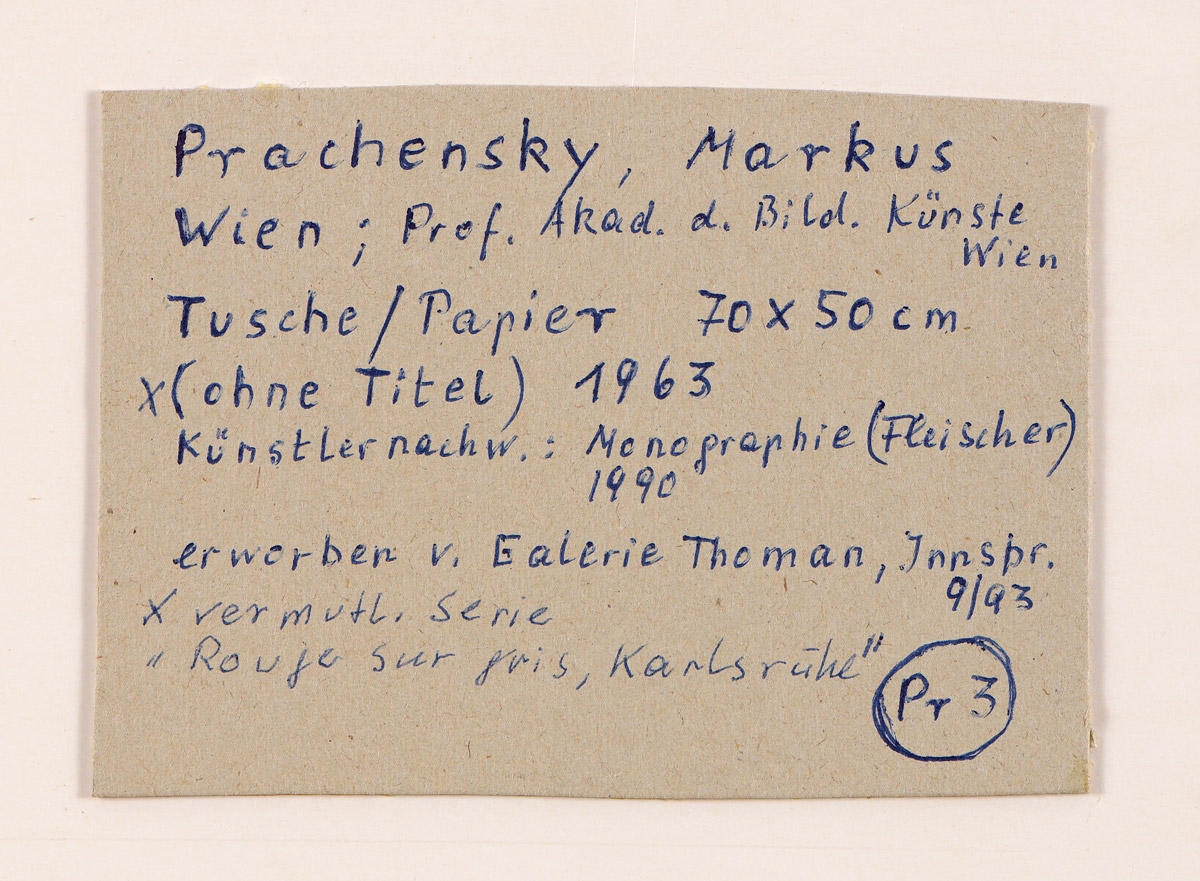 Prachensky, Markus
Wien ; Prof. Akad. d. Bild. Künste
Wien
Tusche/Papier 70x50 cm
x(ohne Titel) 1963
Künstlernachw.: Monographie (Fleischer)
1990
erworben v. Galerie Thoman, Innspr.
9/93
x vermutl. Serie
"Rouge sur gris, Karlsruhe"
Pr 3